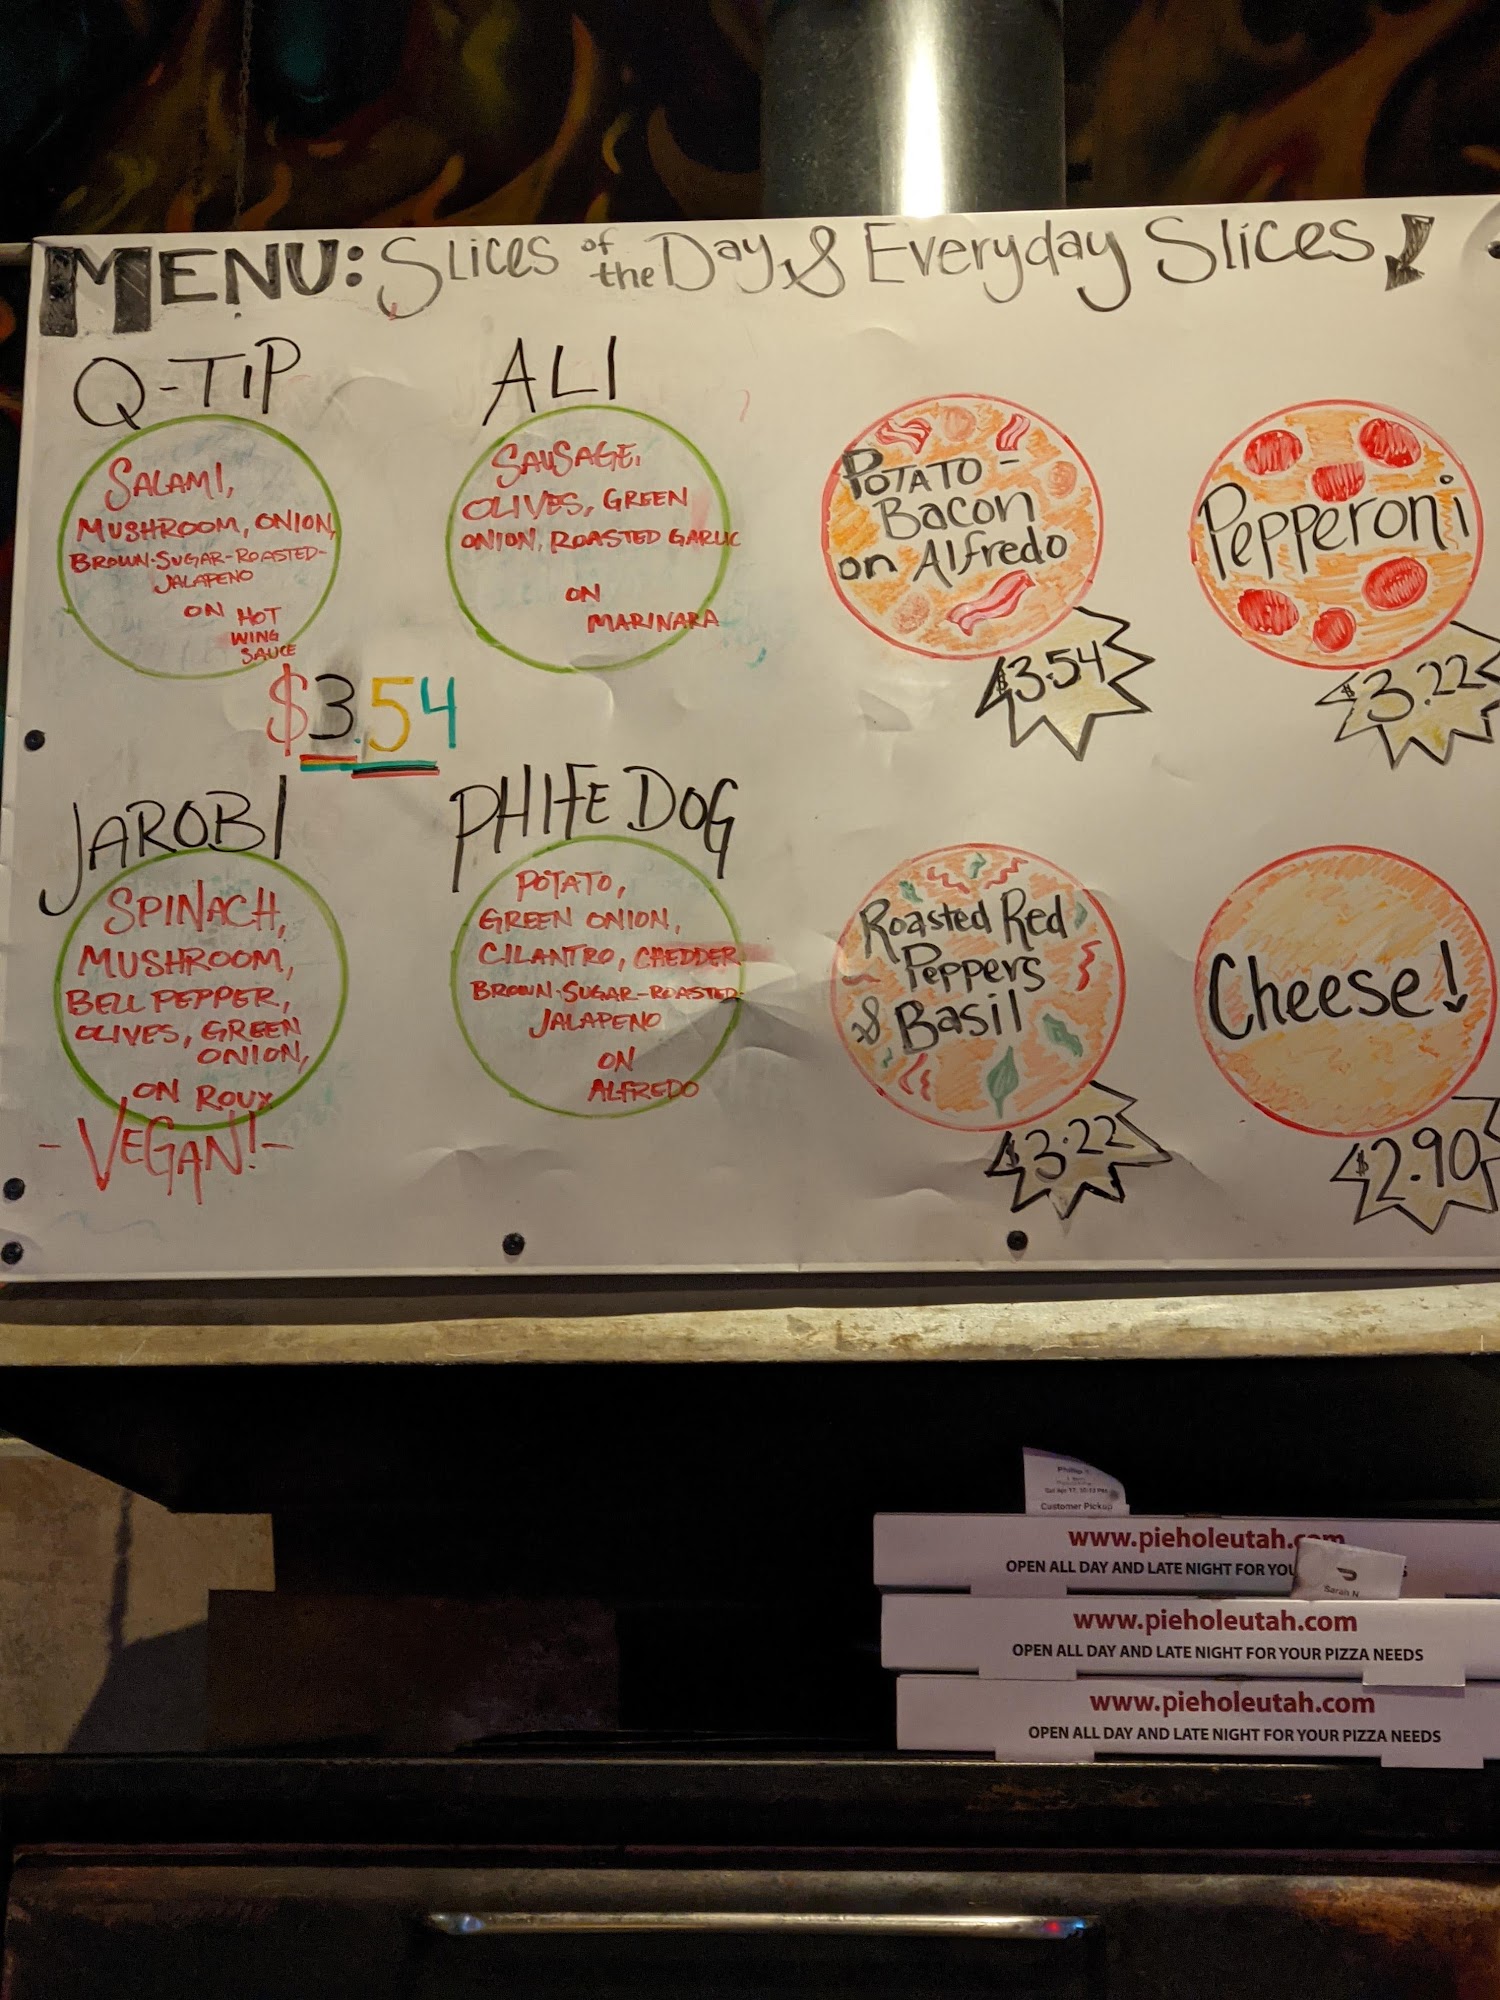 MENU: SLICES of the Day & Everyday SLICES
Q-TIP
SALAMI,
MUSHROOM, ONION,
BROWN-SUGAR-ROASTED-
JALAPENO
ON HOT
WING
SAUCE
ALI
SAUSAGE,
OLIVES, GREEN
ONION, ROASTED GARLIC
ON
MARINARA
$3.54
JAROBI
SPINACH,
MUSHROOM,
BELL PEPPER,
OLIVES, GREEN
ONION,
ON ROUX
-VEGAN!-
PHIFE DOG
POTATO,
GREEN ONION,
CILANTRO, CHEDDER
BROWN-SUGAR-ROASTED-
JALAPENO
ON
ALFREDO
POTATO-
Bacon
on Alfredo
$3.54
Pepperoni
$3.22
Roasted Red
Peppers
& Basil
$3.22
Cheese!
$2.90
Customer Pickup
www.pieholeutah.com
OPEN ALL DAY AND LATE NIGHT FOR YOU
Sarah N
www.pieholeutah.com
OPEN ALL DAY AND LATE NIGHT FOR YOUR PIZZA NEEDS
www.pieholeutah.com
OPEN ALL DAY AND LATE NIGHT FOR YOUR PIZZA NEEDS